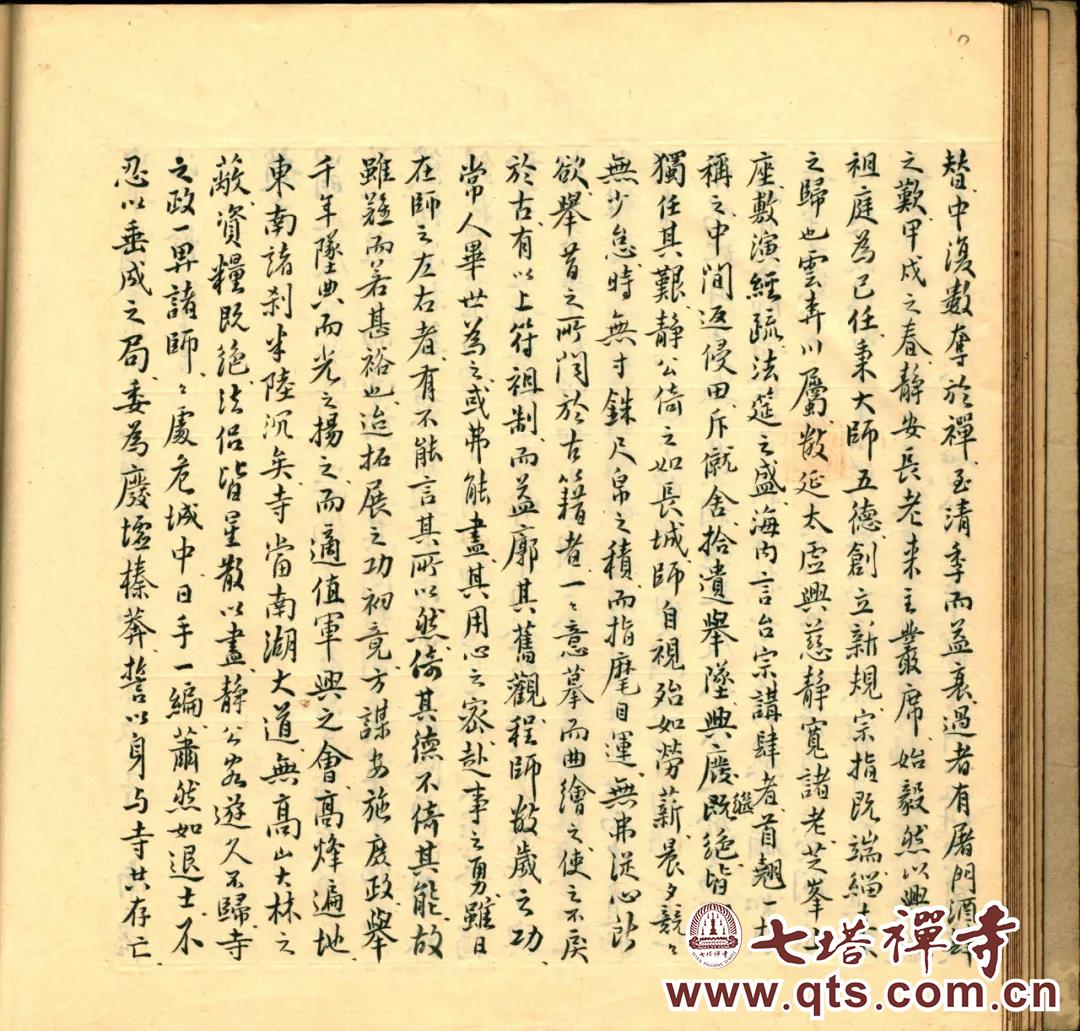 替中復數奪於禪至清季而益衰過者有屠門酒
之歎甲戌之春靜安長老来主叢席始毅然以興
祖庭為已任秉大師五德創立新規宗指既端緇
之歸也雲奔川屬敷延太虛興慈靜寬諸老芝峯
座敷演經疏法筵之盛海内言台宗講肆者首翹一
稱之中間返侵田斥僦舍拾遺舉墜興廢繼絕皆
獨任其艱靜公倚之如長城師自視殆如勞薪晨夕競々
無少怠時無寸銖尺帛之積而指麾目運無弗従心所
欲舉昔之所聞於古籍者一々意摹而曲繪之使之不戾
於古有以上符祖制而益廓其舊觀程師数歲之功
常人畢世為之或弗能盡其用心之密赴事之勇雖日
在師之左右者有不能言其所以然倚其德不倚其能故
雖難而若甚裕也迨拓展之功初竟方謀安施庶政舉
千年墜典而光之揚之而適值軍興之會髙烽遍地
東南諸刹半陸沉矣寺當南湖大道無髙山大林之
蔽資糧既絶法侣皆星散以盡靜公客遊久不歸寺
之政一畀諸師々處危城中日手一編蕭然如退士不
忍以垂成之局委為廢墟榛莽誓以身与寺共存亡
七塔禪寺
七塔禅寺
SEVEN PAGODAS TEMPLE
www.qts.com.cn